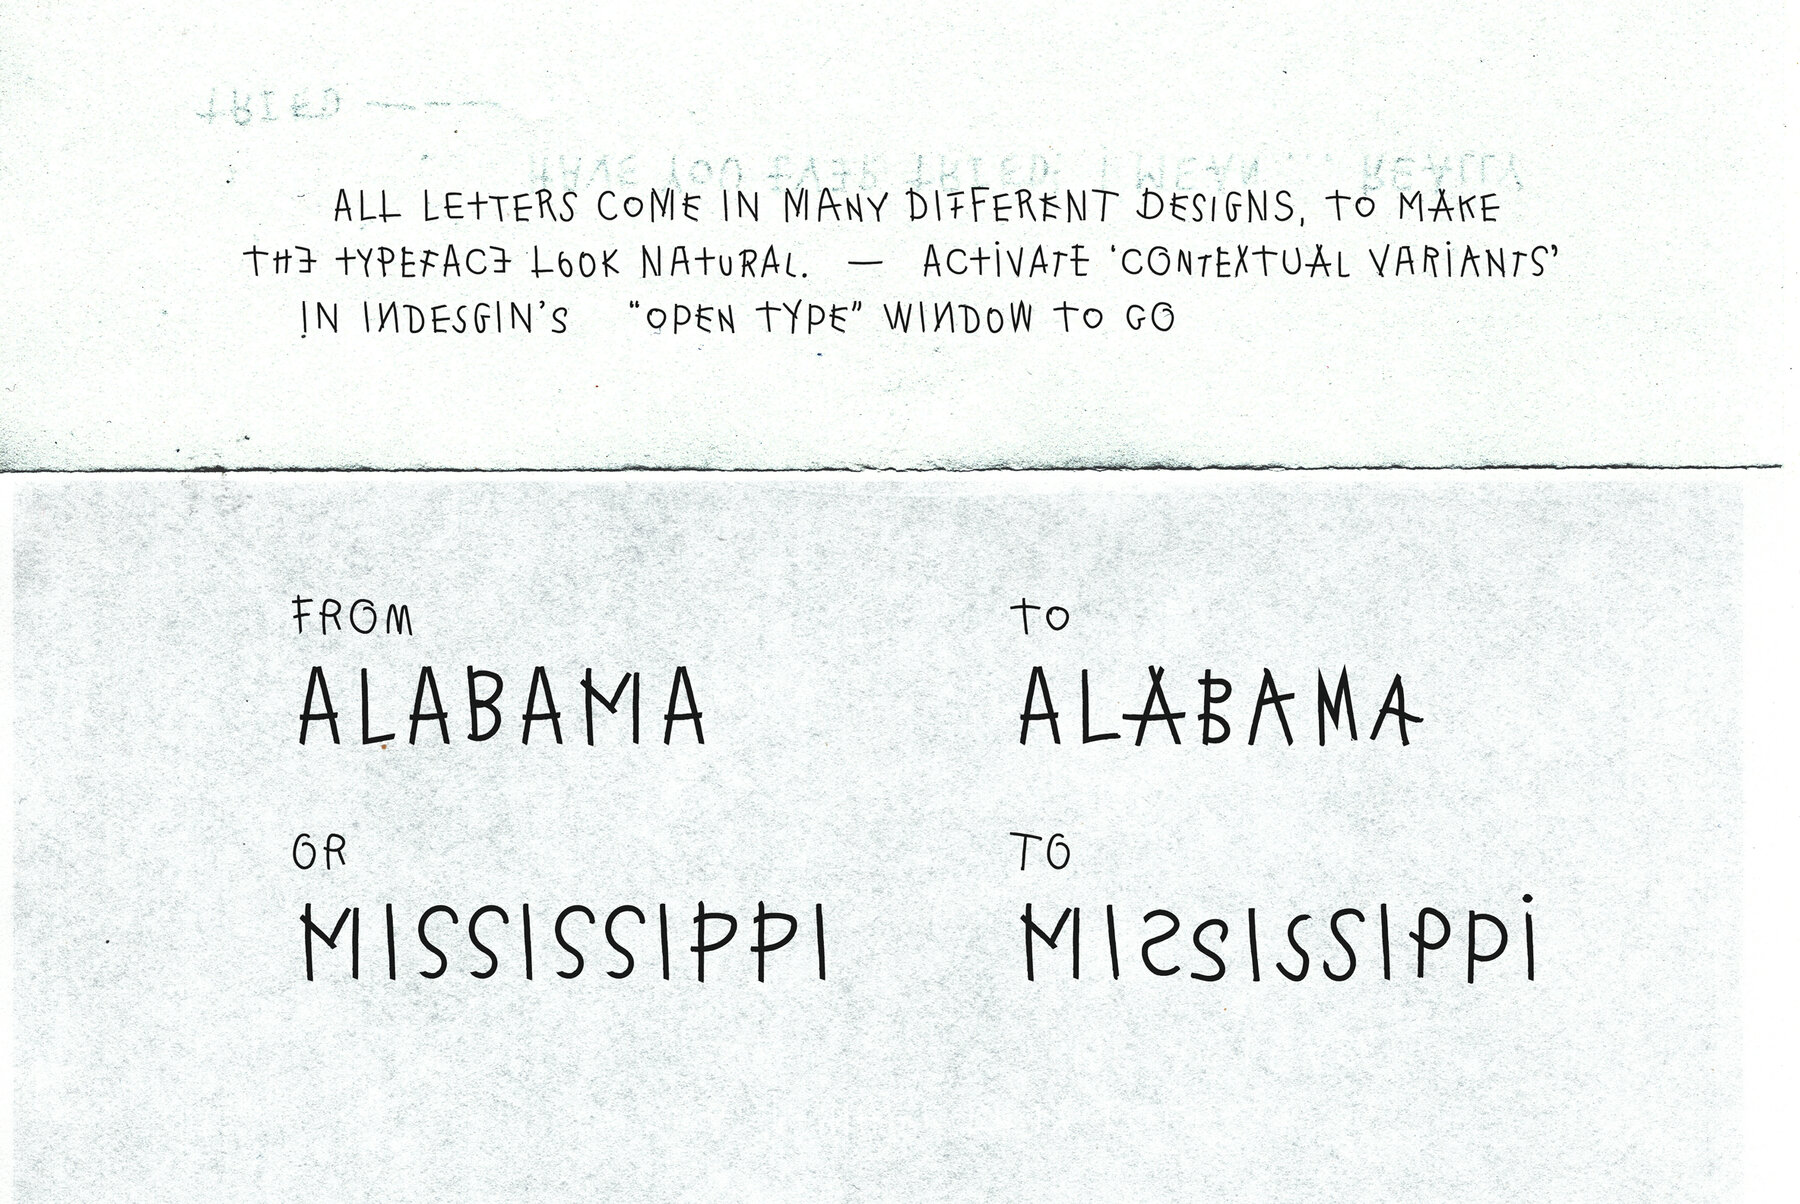 TRIED ———
HAVE YOU EVER TRIED, I MEAN... REALLY
ALL LETTERS COME IN MANY DIFFERENT DESIGNS, TO MAKE
THE TYPEFACE LOOK NATURAL. — ACTIVATE ‘CONTEXTUAL VARIANTS’
IN INDESGIN’S “OPEN TYPE” WINDOW TO GO
FROM
ALABAMA
TO
ALABAMA
OR
MISSISSIPPI
TO
MISSISSIPPi